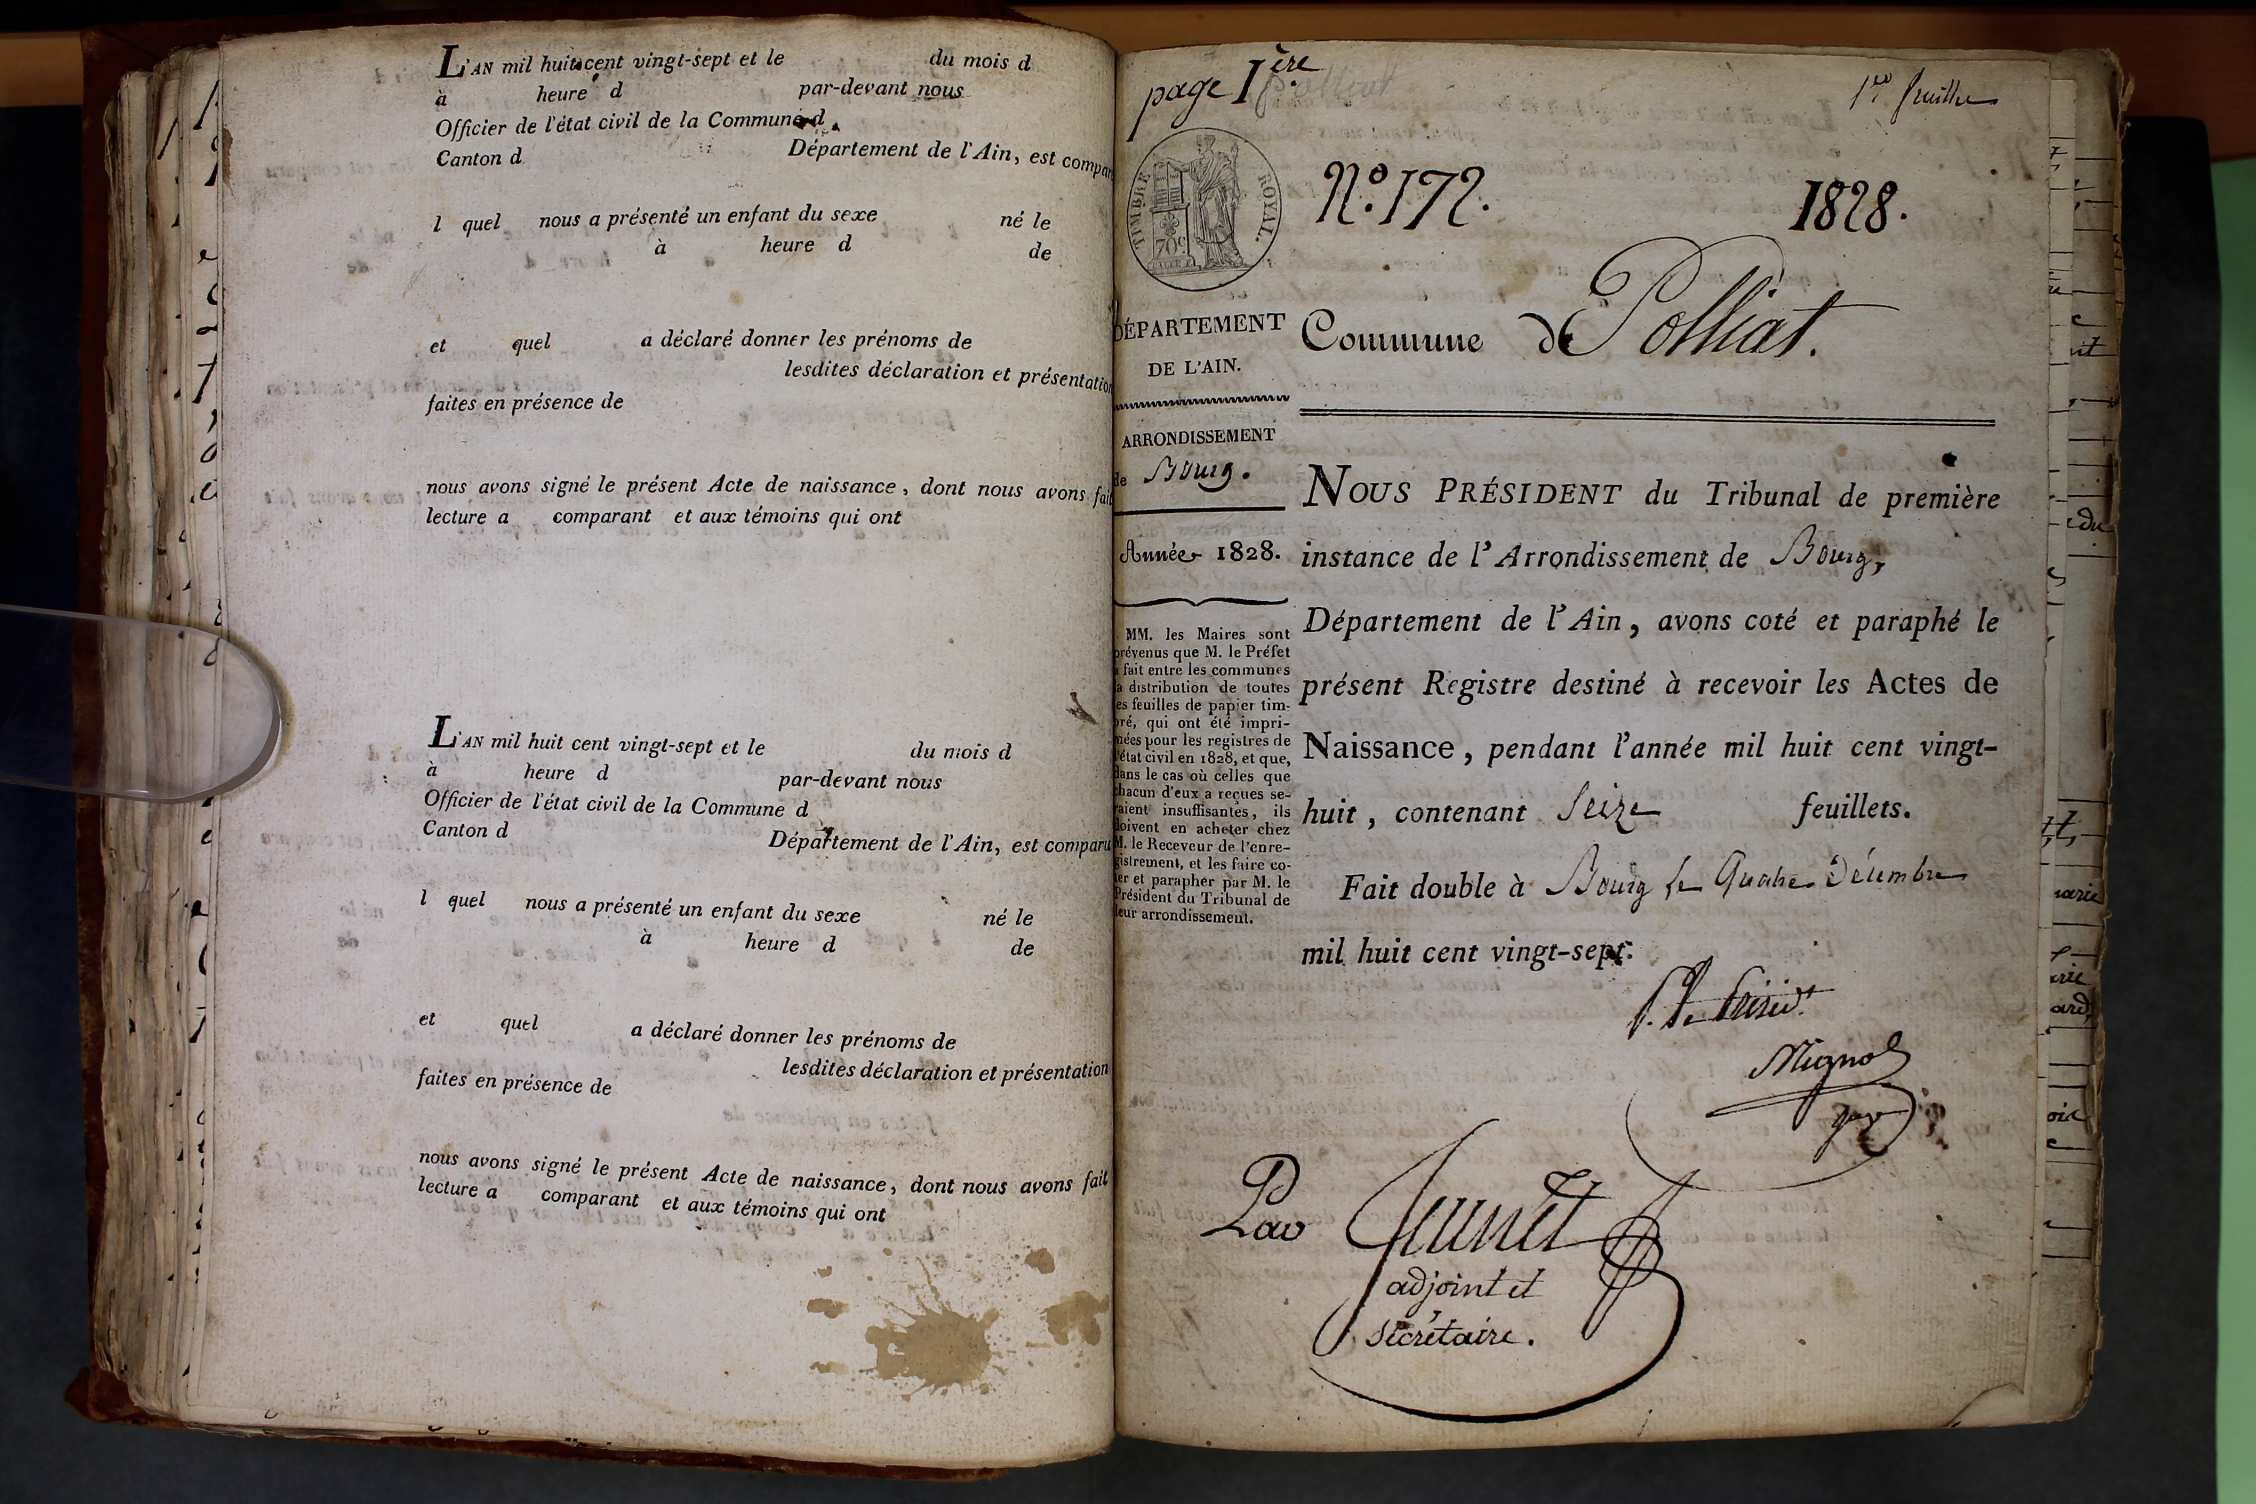 L'AN mil huit cent vingt-sept et le du mois d
à heure d par-devant nous
Officier de l'état civil de la Commune d
Canton d Département de l'Ain, est comparu
l quel nous a présenté un enfant du sexe né le
à heure d de
et quel a déclaré donner les prénoms de
lesdites déclaration et présentation
faites en présence de
nous avons signé le présent Acte de naissance, dont nous avons fait
lecture a comparant et aux témoins qui ont
L'AN mil huit cent vingt-sept et le du mois d
à heure d par-devant nous
Officier de l'état civil de la Commune d
Canton d Département de l'Ain, est comparu
l quel nous a présenté un enfant du sexe né le
à heure d de
et quel a déclaré donner les prénoms de
lesdites déclaration et présentation
faites en présence de
nous avons signé le présent Acte de naissance, dont nous avons fait
lecture a comparant et aux témoins qui ont
page 1ère
Polliat
1er feuillet
TIMBRE ROYAL.
70c
N.o 172. 1828.
DÉPARTEMENT
DE L'AIN.
ARRONDISSEMENT
de Bourg.
Année 1828.
MM. les Maires sont
prévenus que M. le Préfet
a fait entre les communes
la distribution de toutes
les feuilles de papier tim-
bré, qui ont été impri-
mées pour les registres de
l'état civil en 1828, et que,
dans le cas où celles que
chacun d'eux a reçues se-
raient insuffisantes, ils
doivent en acheter chez
M. le Receveur de l'enre-
gistrement, et les faire co-
ter et parapher par M. le
Président du Tribunal de
leur arrondissement.
Commune de Polliat.
NOUS PRÉSIDENT du Tribunal de première
instance de l'Arrondissement de Bourg,
Département de l'Ain, avons coté et paraphé le
présent Registre destiné à recevoir les Actes de
Naissance, pendant l'année mil huit cent vingt-
huit, contenant Seize feuillets.
Fait double à Bourg le Quatre Décembre
mil huit cent vingt-sept.
P. le Présidt.
Mignot
juge
Par Jeunet
adjoint et
Secrétaire.